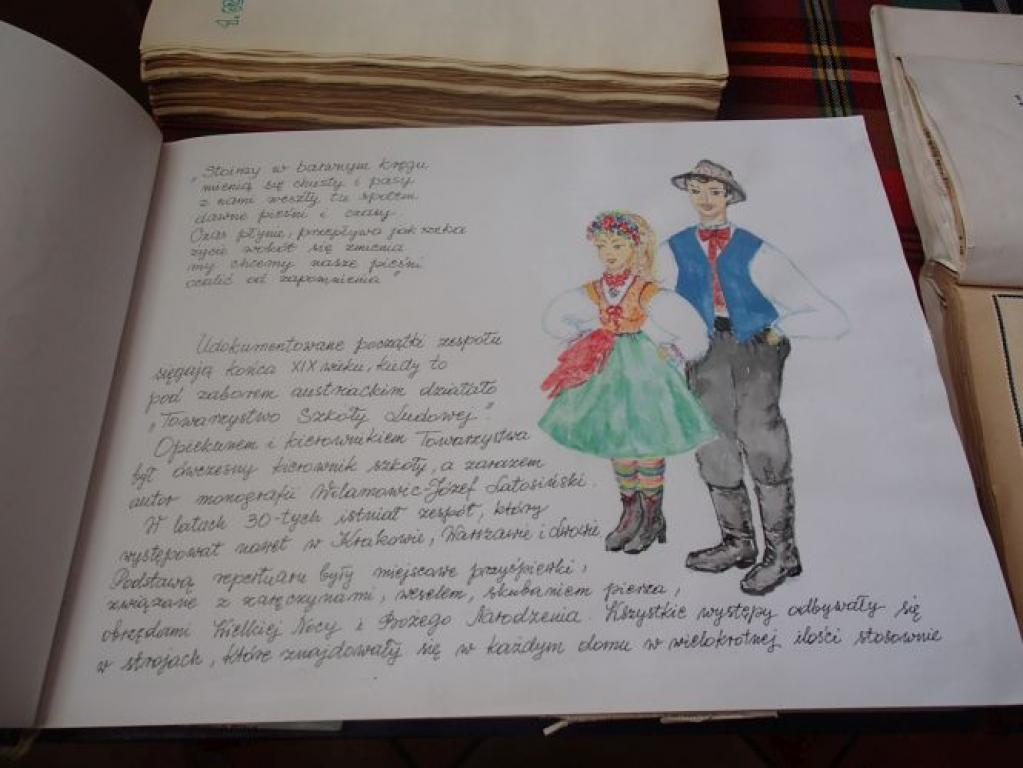 „Stoimy w barwnym kręgu
mienią się chusty i pasy
z nami weszły tu społem
dawne pieśni i czasy
Czas płynie, przepływa jak rzeka
życie wokół się zmienia
my chcemy nasze pieśni
ocalić od zapomnienia"
Udokumentowane początki zespołu
sięgają końca XIX wieku, kiedy to
pod zaborem austriackim działało
„Towarzystwo Szkoły Ludowej".
Opiekunem i kierownikiem Towarzystwa
był ówczesny kierownik szkoły, a zarazem
autor monografii Wilamowic-Józef Latosiński.
W latach 30-tych istniał zespół, który
występował nawet w Krakowie, Warszawie i Lwowie.
Podstawą repertuaru były miejscowe przyśpiewki,
związane z zaręczynami, weselem, skubaniem pierza,
obrzędami Wielkiej Nocy i Bożego Narodzenia. Wszystkie występy odbywały się
w strojach, które znajdowały się w każdym domu w wielokrotnej ilości stosownie